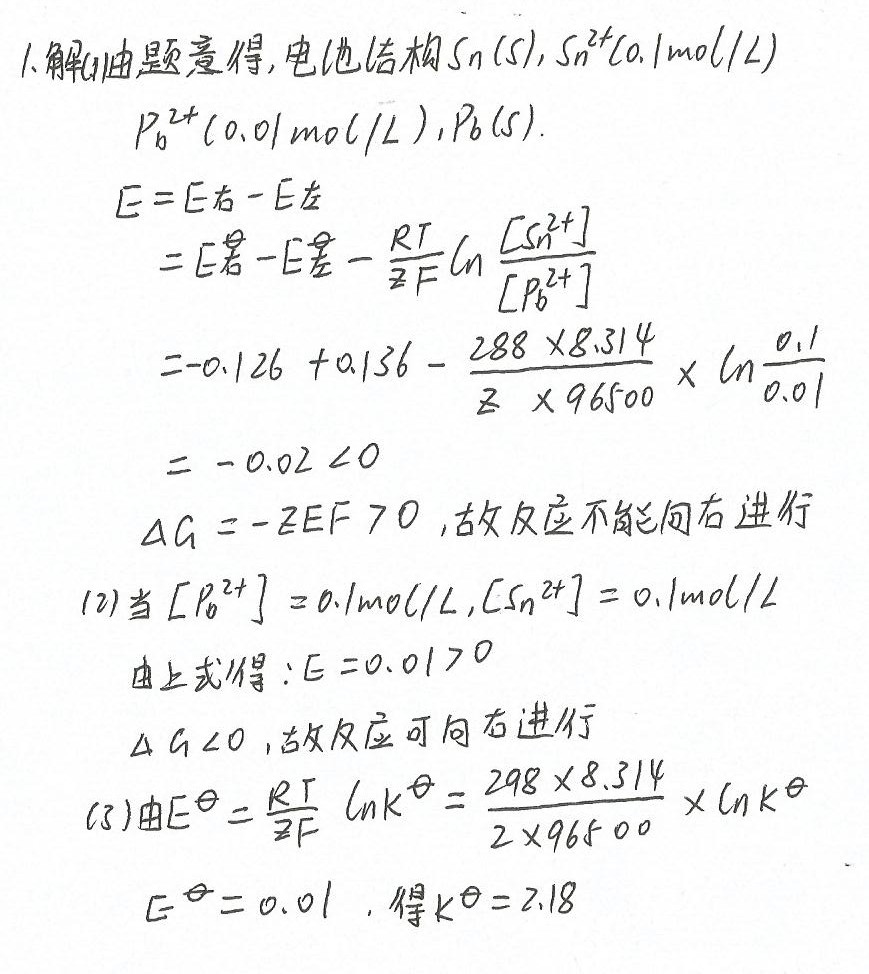 1.解(1)由题意得,电池结构Sn(s),Sn²⁺(0.1mol/L)
Pb²⁺(0.01mol/L),Pb(s).
E=E右-E左
=E右^θ-E左^θ-\frac{RT}{ZF}ln\frac{[Sn²⁺]}{[Pb²⁺]}
=-0.126+0.136-\frac{288×8.314}{Z×96500}×ln\frac{0.1}{0.01}
=-0.02<0
ΔG=-ZEF>0,故反应不能向右进行
(2)当[Pb²⁺]=0.1mol/L,[Sn²⁺]=0.1mol/L
由上式得:E=0.01>0
ΔG<0,故反应可向右进行
(3)由E^θ=\frac{RT}{ZF}lnK^θ=\frac{298×8.314}{2×96500}×lnK^θ
E^θ=0.01,得K^θ=2.18